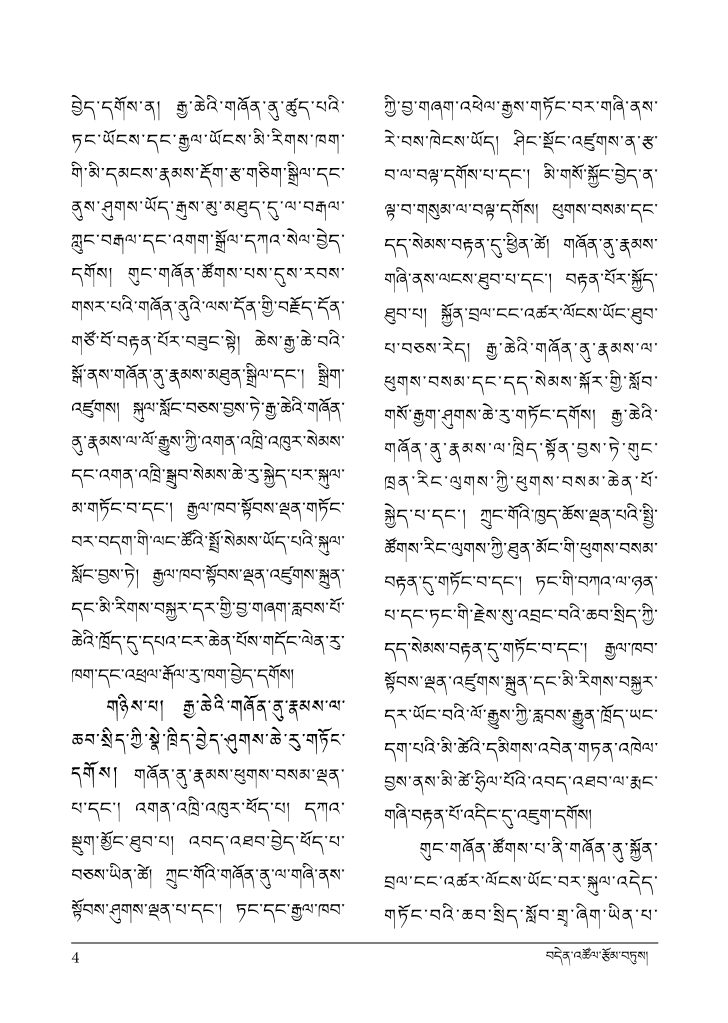 བྱེད་དགོས་ན། རྒྱ་ཆེའི་གཞོན་ནུ་ཚུད་པའི་
ཏང་ཡོངས་དང་རྒྱལ་ཡོངས་མི་རིགས་ཁག་
གི་མི་དམངས་རྣམས་རྡོག་རྩ་གཅིག་སྒྲིལ་དང་
ནུས་ཤུགས་ཡོད་རྒུས་མུ་མཐུད་དུ་ལ་བརྒལ་
ཀླུང་བརྒལ་དང་འགག་སྒྲོལ་དཀའ་སེལ་བྱེད་
དགོས། གུང་གཞོན་ཚོགས་པས་དུས་རབས་
གསར་པའི་གཞོན་ནུའི་ལས་དོན་གྱི་བརྗོད་དོན་
གཙོ་བོ་བརྟན་པོར་བཟུང་སྟེ། ཆེས་རྒྱ་ཆེ་བའི་
སྒོ་ནས་གཞོན་ནུ་རྣམས་མཐུན་སྒྲིལ་དང་། སྒྲིག་
འཛུགས། སྐུལ་སློང་བཅས་བྱས་ཏེ་རྒྱ་ཆེའི་གཞོན་
ནུ་རྣམས་ལ་ལོ་རྒྱུས་ཀྱི་འགན་འཁྲི་འཁུར་སེམས་
དང་འགན་འཁྲི་སྒྲུབ་སེམས་ཆེ་རུ་སྐྱེད་པར་སྐུལ་
མ་གཏོང་བ་དང་། རྒྱལ་ཁབ་སྟོབས་ལྡན་གཏོང་
བར་བདག་གི་ལང་ཚོའི་སྤྲོ་སེམས་ཡོད་པའི་སྐུལ་
སློང་བྱས་ཏེ། རྒྱལ་ཁབ་སྟོབས་ལྡན་འཛུགས་སྐྲུན་
དང་མི་རིགས་བསྐྱར་དར་གྱི་བྱ་གཞག་རླབས་པོ་
ཆེའི་ཁྲོད་དུ་དཔའ་ངར་ཆེན་པོས་གདོང་ལེན་རུ་
ཁག་དང་འཕྲལ་རྒོལ་རུ་ཁག་བྱེད་དགོས།
གཉིས་པ། རྒྱ་ཆེའི་གཞོན་ནུ་རྣམས་ལ་
ཆབ་སྲིད་ཀྱི་སྣེ་ཁྲིད་བྱེད་ཤུགས་ཆེ་རུ་གཏོང་
དགོས། གཞོན་ནུ་རྣམས་ཕུགས་བསམ་ལྡན་
པ་དང་། འགན་འཁྲི་འཁུར་ཕོད་པ། དཀའ་
སྡུག་མྱོང་ཐུབ་པ། འབད་འཐབ་བྱེད་ཕོད་པ་
བཅས་ཡིན་ཚེ། ཀྲུང་གོའི་གཞོན་ནུ་ལ་གཞི་ནས་
སྟོབས་ཤུགས་ལྡན་པ་དང་། ཏང་དང་རྒྱལ་ཁབ་
ཀྱི་བྱ་གཞག་འཕེལ་རྒྱས་གཏོང་བར་གཞི་ནས་
རེ་བས་ཁེངས་ཡོད། ཤིང་སྡོང་འཛུགས་ན་རྩ་
བ་ལ་བལྟ་དགོས་པ་དང་། མི་གསོ་སྐྱོང་བྱེད་ན་
ལྟ་བ་གསུམ་ལ་བལྟ་དགོས། ཕུགས་བསམ་དང་
དད་སེམས་བརྟན་དུ་ཕྱིན་ཚེ། གཞོན་ནུ་རྣམས་
གཞི་ནས་ལངས་ཐུབ་པ་དང་། བརྟན་པོར་སྐྱོད་
ཐུབ་པ། སྐྱོན་བྲལ་ངང་འཚར་ལོངས་ཡོང་ཐུབ་
པ་བཅས་རེད། རྒྱ་ཆེའི་གཞོན་ནུ་རྣམས་ལ་
ཕུགས་བསམ་དང་དད་སེམས་སྐོར་གྱི་སློབ་
གསོ་རྒྱག་ཤུགས་ཆེ་རུ་གཏོང་དགོས། རྒྱ་ཆེའི་
གཞོན་ནུ་རྣམས་ལ་ཁྲིད་སྟོན་བྱས་ཏེ་གུང་
ཁྲན་རིང་ལུགས་ཀྱི་ཕུགས་བསམ་ཆེན་པོ་
སྐྱེད་པ་དང་། ཀྲུང་གོའི་ཁྱད་ཆོས་ལྡན་པའི་སྤྱི་
ཚོགས་རིང་ལུགས་ཀྱི་ཐུན་མོང་གི་ཕུགས་བསམ་
བརྟན་དུ་གཏོང་བ་དང་། ཏང་གི་བཀའ་ལ་ཉན་
པ་དང་ཏང་གི་རྗེས་སུ་འབྲང་བའི་ཆབ་སྲིད་ཀྱི་
དད་སེམས་བརྟན་དུ་གཏོང་བ་དང་། རྒྱལ་ཁབ་
སྟོབས་ལྡན་འཛུགས་སྐྲུན་དང་མི་རིགས་བསྐྱར་
དར་ཡོང་བའི་ལོ་རྒྱུས་ཀྱི་རླབས་རྒྱུན་ཁྲོད་ཡང་
དག་པའི་མི་ཚེའི་དམིགས་འབེན་གཏན་འཁེལ་
བྱས་ནས་མི་ཚེ་ཧྲིལ་པོའི་འབད་འཐབ་ལ་རྨང་
གཞི་བརྟན་པོ་འདིང་དུ་འཇུག་དགོས།
གུང་གཞོན་ཚོགས་པ་ནི་གཞོན་ནུ་སྐྱོན་
བྲལ་ངང་འཚར་ལོངས་ཡོང་བར་སྐུལ་འདེད་
གཏོང་བའི་ཆབ་སྲིད་སློབ་གྲྭ་ཞིག་ཡིན་པ་
4
བདེན་འཚོལ་རྩོམ་བཏུས།